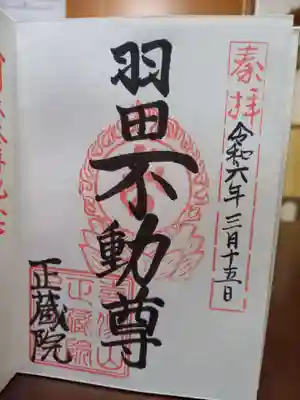 奉拝
令和六年 三月十五日
羽田不動尊
正蔵院